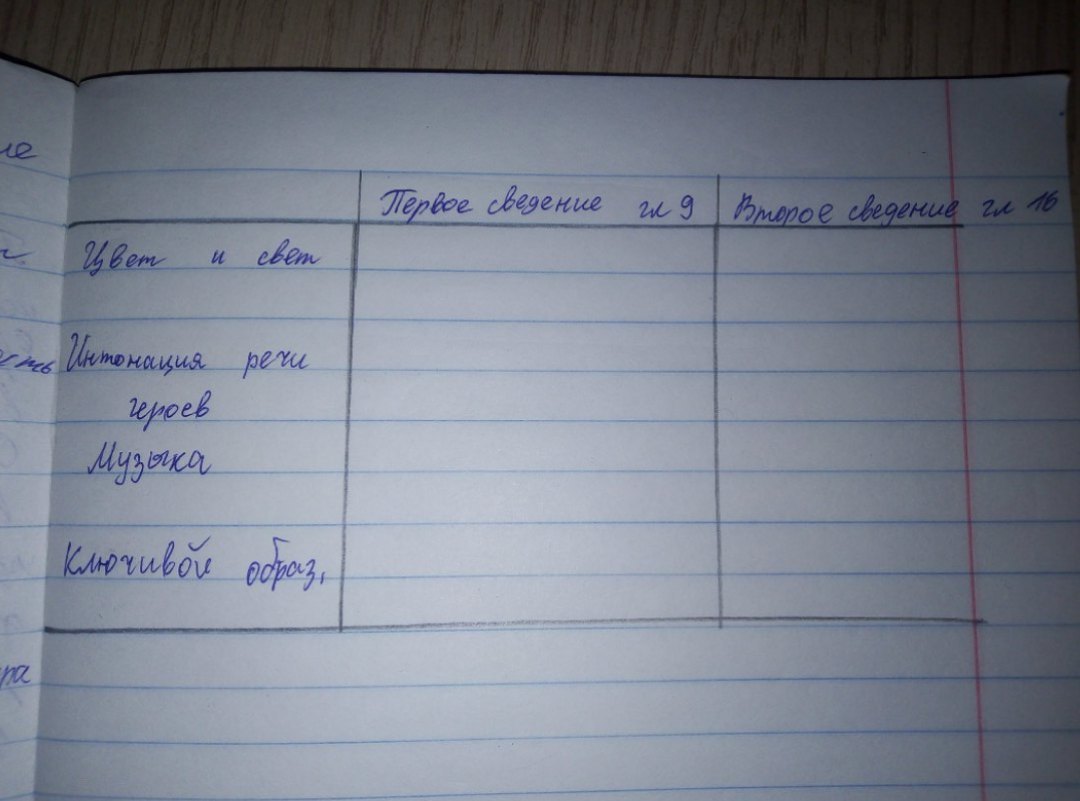 Первое сведение гл 9 Второе сведение гл 16
Цвет и свет
Интонация речи
героев
Музыка
Ключивой образ,